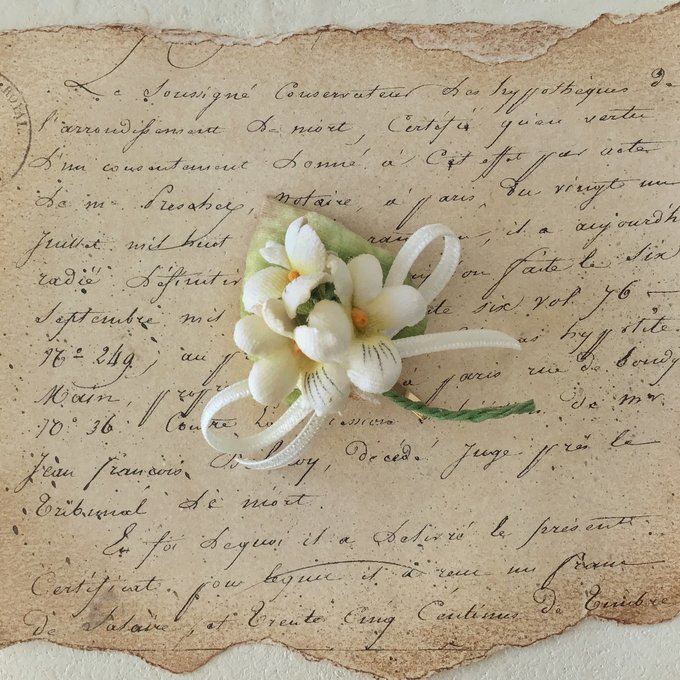 Le Soussigné Conservateur Des hypothèques De
l'arrondissement De niort, Certifie qu'en vertu
D'un consentement Donné à Cet effet par acte
De me Preschez, notaire, à paris, Du vingt un
Juillet mil huit il a aujourdh
radié Définiti faite le Six
Septembre mil six vol. 76 —
No 249; au hypoth
Main, à paris rue de bondy
No 36. Contre La ession de mr
Jean françois, décédé Juge près le
Tribunal De niort.
En foi Dequoi il a Delivré le présent
Certificat, pour lequel il a recu un franc
De Salaire, et Trente Cinq Centimes De Timbre
ROYAL.